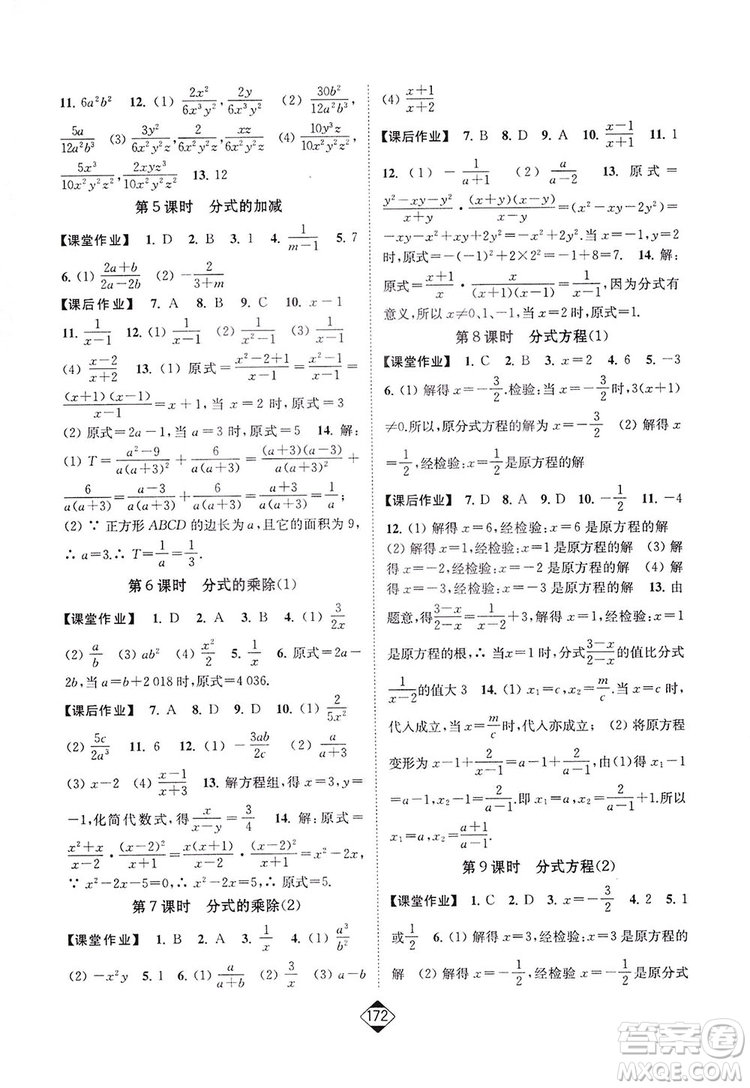 11. 6a²b²  12. (1) \frac{2x²}{6x³y²}, \frac{2y}{6x³y²}  (2) \frac{30b²}{12a²b³},
\frac{5a}{12a²b³}  (3) \frac{3y²}{6x²y²z}, \frac{2}{6x²y²z}, \frac{xz}{6x²y²z}  (4) \frac{10y³z}{10x²y²z},
\frac{5x³}{10x²y²z}, \frac{2xyz³}{10x²y²z}  13. 12
第5课时 分式的加减
【课堂作业】 1. D  2. A  3. D  4. \frac{1}{m-1}  5. 7
6. (1) \frac{2a+b}{2a-2b}  (2) -\frac{2}{a+3}
【课后作业】 7. A  8. B  9. C  10. x-1
11. \frac{1}{x-1}  12. (1) \frac{1}{x-1}  (2) \frac{1}{x+1}  (3) \frac{1}{x-1}
(4) \frac{x-2}{x+2}  13. (1) 原式=\frac{x²-2}{x-1}+\frac{1}{x-1}=\frac{x²-1}{x-1}=
\frac{(x+1)(x-1)}{x-1}=x+1, 当 x=2 时, 原式=3
(2) 原式=2a-1, 当 a=3 时, 原式=5  14. 解:
(1) T=\frac{a²-9}{a(a+3)}+\frac{6}{a(a+3)}=\frac{(a+3)(a-3)}{a(a+3)}+
\frac{6}{a(a+3)}=\frac{a-3}{a}+\frac{6}{a(a+3)}=\frac{a+3}{a(a+3)}=\frac{1}{a};
(2) ∵ 正方形 ABCD 的边长为 a, 且它的面积为 9,
∴ a=3. ∴ T=\frac{1}{a}=\frac{1}{3}.
第6课时 分式的乘除(1)
【课堂作业】 1. D  2. A  3. D  4. (1) \frac{3}{2x}
(2) \frac{a}{b}  (3) ab²  (4) \frac{x²}{y}  5. \frac{x}{6}  6. 原式=2a-
2b, 当 a=b+2 018 时, 原式=4 036.
【课后作业】 7. A  8. B  9. D  10. (1) \frac{2}{5x²}
(2) \frac{5c}{2a³}  11. 6  12. (1) -\frac{3ab}{2c}  (2) \frac{a+2}{a+3}
(3) x-2  (4) \frac{x-1}{x+3}  13. 解方程组, 得 x=3, y=
-1, 化简代数式, 得\frac{x}{x-y}=\frac{3}{4}  14. 解: 原式=
\frac{x²+x}{x-2}·\frac{(x-2)²}{x+1}=\frac{x(x+1)}{x-2}·\frac{(x-2)²}{x+1}=x²-2x,
∵ x²-2x-5=0, ∴ x²-2x=5, ∴ 原式=5.
第7课时 分式的乘除(2)
【课堂作业】 1. B  2. A  3. \frac{1}{x}  4. (1) \frac{a³}{b²}
(2) -x²y  5. 1  6. (1) \frac{a}{a+b}  (2) \frac{3}{x}  (3) \frac{1}{a}
(4) \frac{x+1}{x+2}
【课后作业】 7. B  8. D  9. A  10. \frac{x-1}{x}  11. 1
12. (1) -\frac{1}{a+1}  (2) \frac{a}{a-2}  13. 原式=
\frac{y²-xy-y²}{x+y}·\frac{(x+y)(x-y)}{x-y}=\frac{-xy(x+y)}{x+y}=
-xy, 当 x=-1, y=2 时, 原式=-(-1)×2=2
-x²+xy=-(-1)²+2×2²=-1+8=7  14. 解:
原式=\frac{x+1}{x}·\frac{x}{(x+1)(x-1)}=\frac{1}{x-1}, 因为分式有
意义, 所以 x≠0、1、-1, 当 x=2 时, 原式=1.
第8课时 分式方程(1)
【课堂作业】 1. C  2. D  3. x=2  4. 6  5. -3
6. (1) 解得 x=-\frac{3}{2}. 检验: 当 x=-\frac{3}{2}时, 3(x+1)
≠0. 所以, 原分式方程的解为 x=-\frac{3}{2}  (2) 解得 x=
\frac{1}{2}, 经检验: x=\frac{1}{2}是原方程的解
【课后作业】 7. D  8. D  9. A  10. -\frac{1}{2}  11. -4
12. (1) 解得 x=6, 经检验: x=6 是原方程的解
(2) 解得 x=1, 经检验: x=1 是原方程的解  (4) 解得
x=-8. 经检验: x=-8 是原方程的解  13. 由
题意, 得\frac{3-x}{2-x}-\frac{1}{x-2}=3, 解得 x=1, 经检验: x=1 是
原方程的根, ∴ 当 x=1 时, 分式\frac{3-x}{2-x}的值比分式
\frac{1}{x-2}的值大 3  14. (1) x₁=c, x₂=\frac{m}{c}, 当 x=c 时,
代入成立, 当 x=\frac{m}{c}时, 代入亦成立;  (2) 将原方程
变形为 x-1+\frac{2}{x-1}=a-1+\frac{2}{a-1}, ∴ x₁-1
=a-1, x₂-1=\frac{2}{a-1}. 即 x₁=a, x₂=1+\frac{2}{a-1}. 所以
x₁=a, x₂=\frac{a+1}{a-1}.
第9课时 分式方程(2)
【课堂作业】 1. C  2. D  3. x=-\frac{3}{2}  4. 2  5. 1
或\frac{1}{2}  6. (1) 解得 x=-\frac{3}{2}, x=-\frac{3}{2}是原方程的
解  (2) 解得 x=1, 经检验: x=1 是原分式
172
答案圈
MXQE.COM